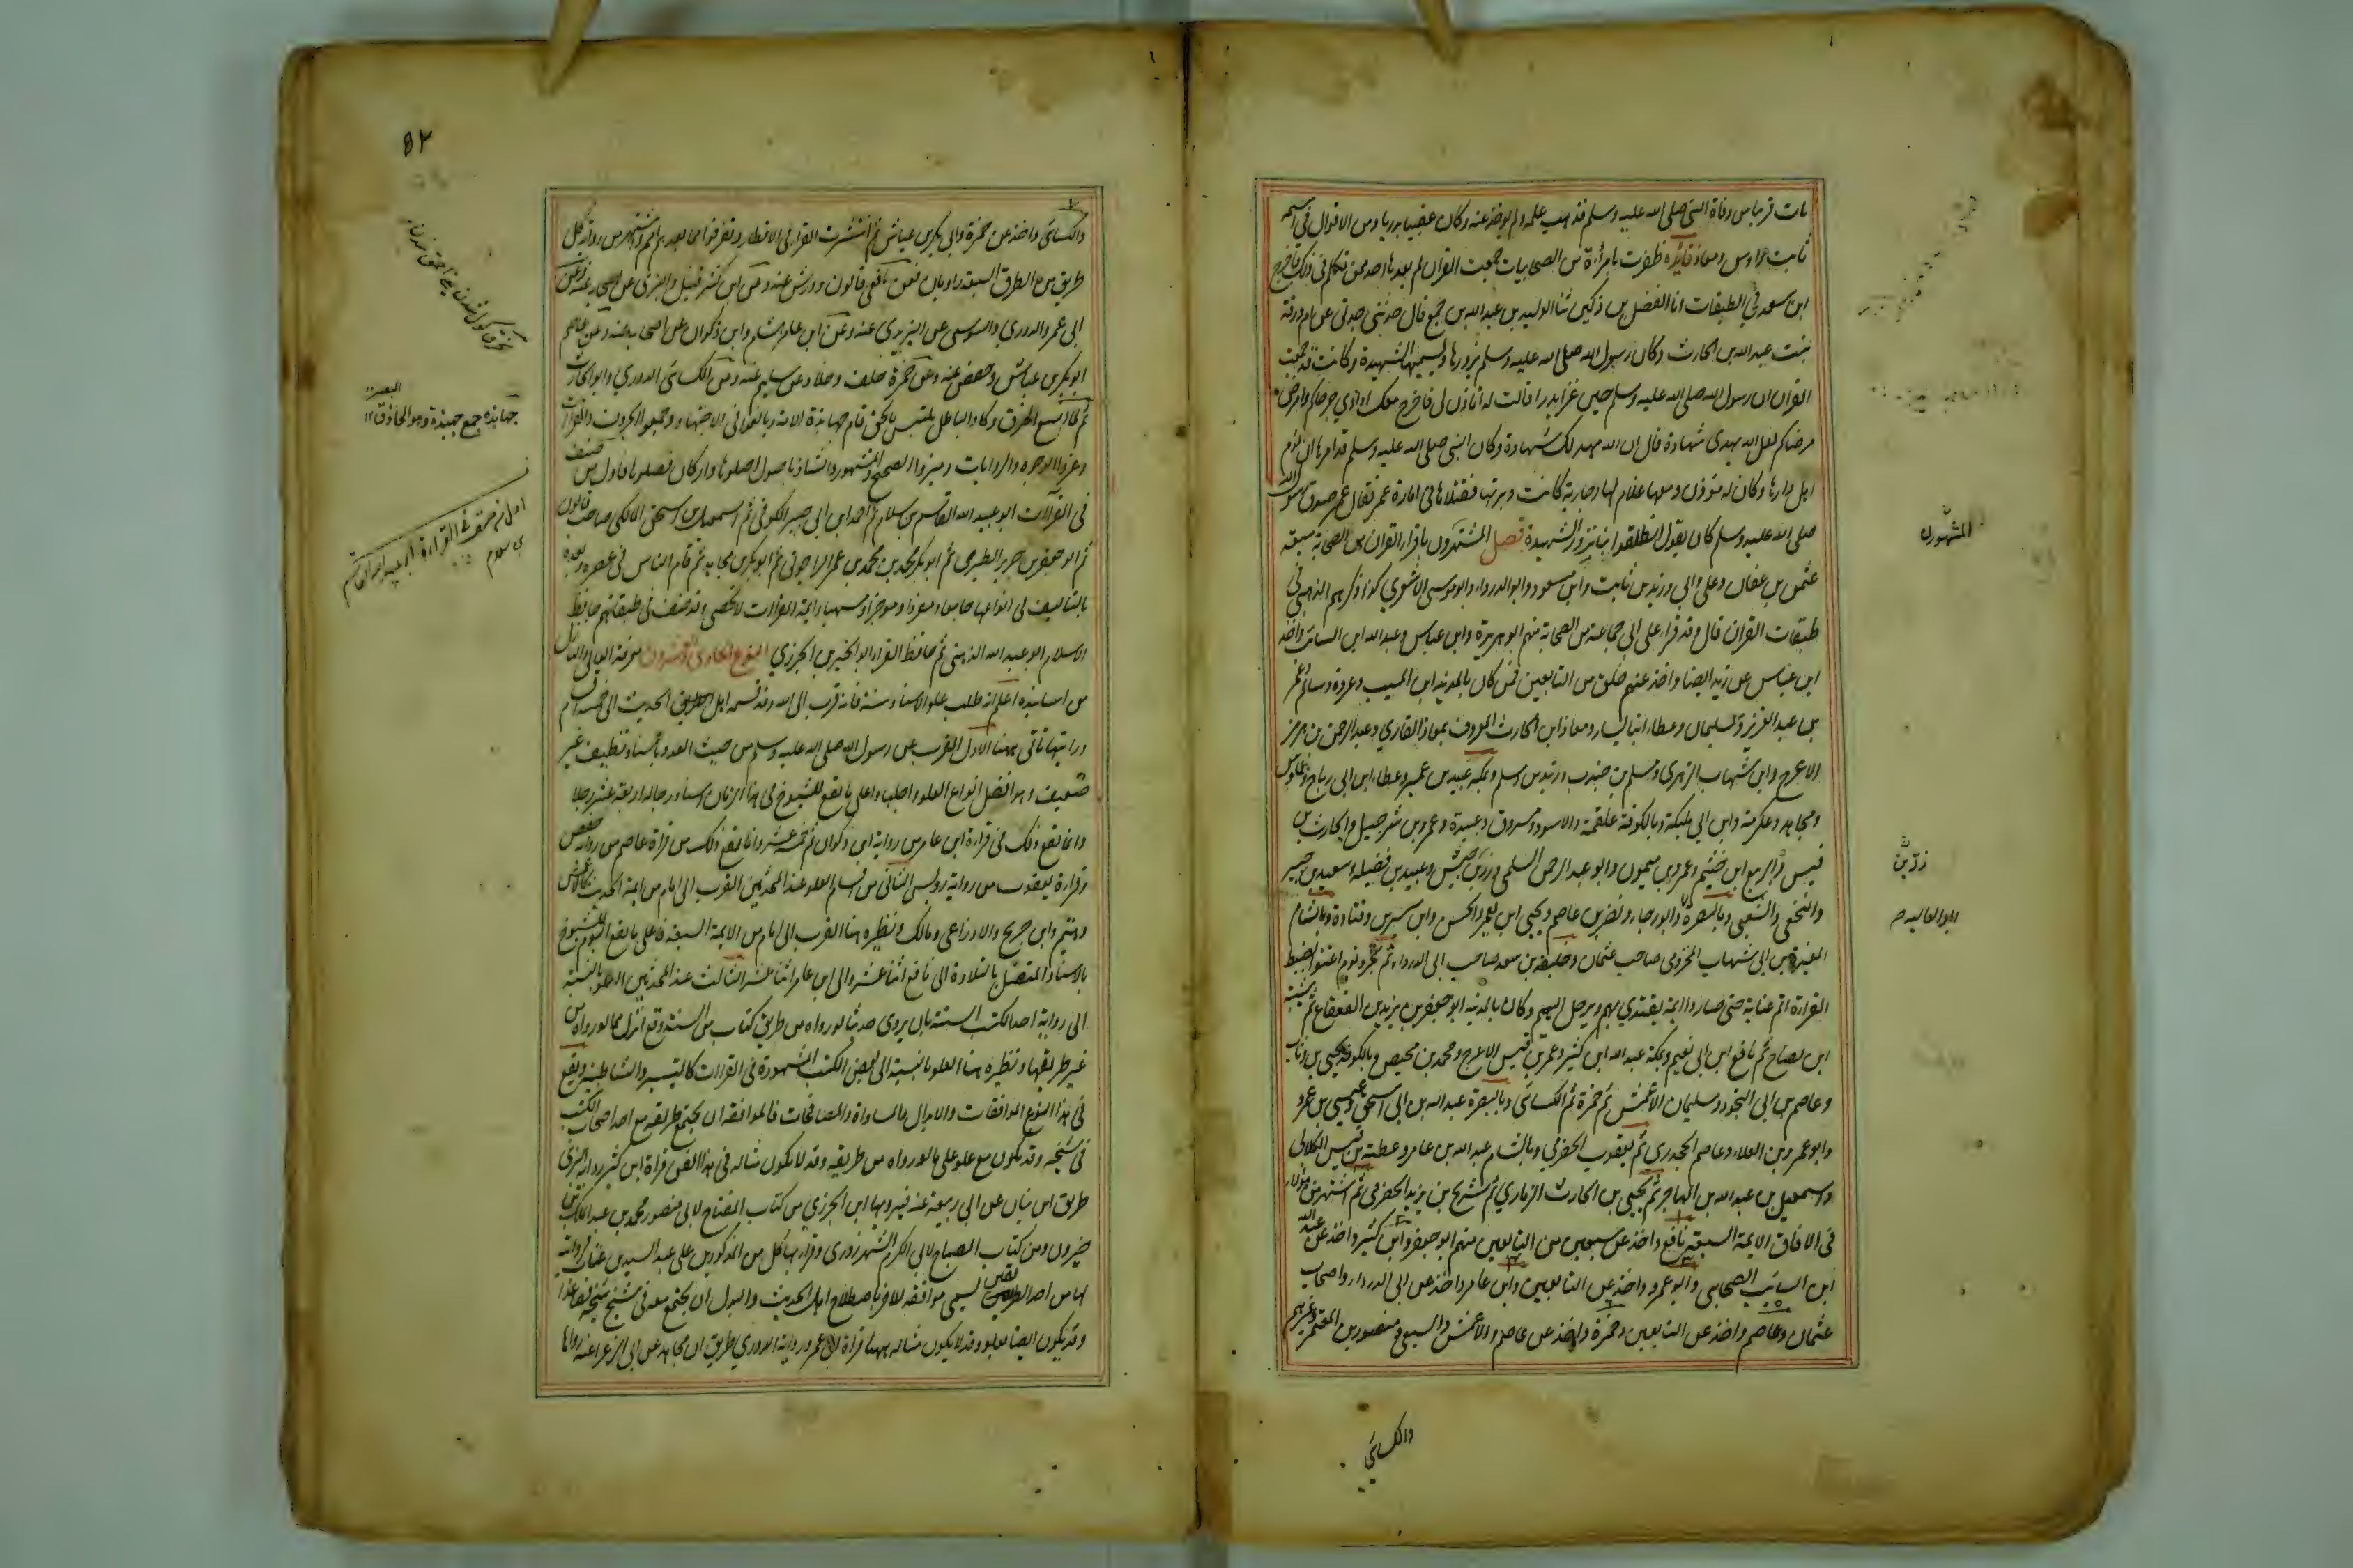 مات قريبا من وفاة النبي صلى الله عليه وسلم فذهب علمه ولم يوخذ عنه وكان عقبيا بدريا ومن الاقوال في اسمه
ثابت واوس ومعاذ فائدة ظفرت بامرأة من الصحابيات جمعت القرآن لم يعدها احد ممن تكلم في ذلك فاخرج
ابن سعد في الطبقات انا الفضل بن دكين ثنا الوليد بن عبد الله بن جميع قال حدثتني جدتي عن ام ورقة
بنت عبد الله بن الحارث وكان رسول الله صلى الله عليه وسلم يزورها ويسميها الشهيدة وكانت قد جمعت
القرآن ان رسول الله صلى الله عليه وسلم حين غزا بدرا قالت له أتأذن لي فاخرج معك اداوي جرحاكم وامرض
مرضاكم لعل الله يهدي شهادة قال ان الله مهد لك شهادة وكان النبي صلى الله عليه وسلم قد امرها ان تؤم
اهل دارها وكان لها مؤذن ومعها غلام لها وجارية كانت دبرتهما فقتلاها في امارة عمر فقال عمر صدق رسول الله
صلى الله عليه وسلم كان يقول انطلقوا بنا نزور الشهيدة فصل المشتهرون باقراء القرآن من الصحابة سبعة
عثمن بن عفان وعلي وابي وزيد بن ثابت وابن مسعود وابو الدرداء وابو موسى الاشعري كذا ذكرهم الذهبي في
طبقات القران قال وقد قراء على ابي جماعة من الصحابة منهم ابو هريرة وابن عباس وعبد الله ابن السائب واخذ
ابن عباس عن زيد ايضا واخذ عنهم خلق من التابعين فمن كان بالمدينة ابن المسيب وعروة وسالم وعمر
بن عبد العزيز وسليمان وعطاء ابنا يسار ومعاذ ابن الحارث المعروف بمعاذ القاري وعبد الرحمن بن هرمز
الاعرج وابن شهاب الزهري ومسلم بن جندب وزيد بن اسلم وبمكة عبيد بن عمير وعطاء ابن ابي رباح وطاوس
ومجاهد وعكرمة وابن ابي مليكة وبالكوفة علقمة والاسود ومسروق وعبيدة وعمرو بن شرحبيل والحارث بن
قيس والربيع ابن خثيم وعمرو بن ميمون وابو عبد الرحمن السلمي وزر بن حبيش وعبيد بن نضيلة وسعيد بن جبير
والنخعي والشعبي وبالبصرة وابو رجاء ونصر بن عاصم ويحيى ابن يعمر والحسن وابن سيرين وقتادة وبالشام
المغيرة بن ابي شهاب المخزومي صاحب عثمان وخليفة بن سعد صاحب ابي الدرداء ثم تجرد قوم اعتنوا بضبط
القراءة اتم عناية حتى صاروا ايمة يقتدي بهم ويرحل اليهم وكان بالمدينة ابو جعفر بن يزيد بن القعقاع ثم شيبة
ابن نصاح ثم نافع ابن ابي نعيم وبمكة عبد الله ابن كثير وعمر بن قيس الاعرج ومحمد بن محيصن وبالكوفة يحيى بن وثاب
وعاصم بن ابي النجود وسليمان الاعمش ثم حمزة ثم الكسائي وبالبصرة عبد الله بن ابي اسحق وعيسى بن عمر
وابو عمرو بن العلاء وعاصم الجحدري ثم يعقوب الحضرمي وبالشام عبد الله بن عامر وعطية بن قيس الكلابي
واسمعيل بن عبد الله بن المهاجر ثم يحيى بن الحارث الزماري ثم شريح بن يزيد الحضرمي ثم اشتهر من هؤلاء
في الافاق الايمة السبعة نافع واخذ عن سبعين من التابعين منهم ابو جعفر وابن كثير واخذ عن عبد الله
ابن السائب الصحابي وابو عمرو واخذ عن التابعين وابن عامر واخذ عن ابي الدرداء واصحاب
عثمان وعاصم واخذ عن التابعين وحمزة واخذ عن عاصم والاعمش والسبيعي ومنصور بن المعتمر وغيرهم
والكسائي
المشهورن
زر بن
ابو العالية
٥٢
والكسائي واخذ عن حمزة وابي بكر بن عياش ثم انتشرت القراء في الاقطار وتفرقوا امما بعد امم واشتهر من رواة كل
طريق من الطرق السبعة راويان فعن نافع قالون وورش عنه وعن ابن كثير قنبل والبزي عن اصحابه عنه وعن
ابي عمرو الدوري والسوسي عن اليزيدي عنه وعن ابن عامر هشام وابن ذكوان عن اصحابه عنه وعن عاصم
ابو بكر بن عياش وحفص عنه وعن حمزة خلف وخلاد عن سليم عنه وعن الكسائي الدوري وابو الحارث
ثم لما اتسع الخرق وكاد الباطل يلتبس بالحق قام جهابذة الامة وبالغوا في الاجتهاد وجمعوا الحروف والقراآت
وعزوا الوجوه والروايات وميزوا الصحيح والمشهور والشاذ باصول اصلوها واركان فصلوها فاول من صنف
في القراآت ابو عبيد الله القاسم بن سلام ثم احمد ابن ابي جبير الكوفي ثم اسمعيل بن اسحق المالكي صاحب قالون
ثم ابو جعفر بن جرير الطبري ثم ابو بكر محمد بن محمد بن عمر الداجوني ثم ابو بكر بن مجاهد ثم قام الناس في عصره وبعده
بالتاليف في انواعها جامعا ومفردا وموجزا ومسهبا وايمة القراآت لا تحصى وقد صنف في طبقاتهم حافظ
الاسلام ابو عبد الله الذهبي ثم حافظ القراء ابو الخير بن الجزري النوع الحادي والعشرون معرفة العالي والنازل
من اسانيده اعلم انه طلب علو الاسناد سنة فانه قرب الى الله وقد قسمه اهل الحديث الى خمسة اقسام
ورايتها تاتي ههنا الاول القرب من رسول الله صلى الله عليه وسلم من حيث العدد باسناد نظيف غير
ضعيف وهو افضل انواع العلو واجلها واعلى ما يقع للشيوخ في هذا الزمان اسناد رجاله اربعة عشر رجلا
وانما يقع ذلك في قراءة ابن عامر من رواية ابن ذكوان ثم خمسة عشر وانما يقع ذلك من قراءة عاصم من رواية حفص
وقراءة يعقوب من رواية رويس الثاني من اقسام العلو عند المحدثين القرب الى امام من ايمة الحديث كالاعمش
وهشيم وابن جريج والاوزاعي ومالك ونظيره هنا القرب الى امام من الايمة السبعة فاعلى ما يقع اليوم للشيوخ
بالاسناد المتصل بالتلاوة الى نافع اثنا عشر والى ابن عامر اثنا عشر الثالث عند المحدثين العلو بالنسبة
الى رواية احد الكتب الستة بان يروي حديثا لو رواه من طريق كتاب من الستة وقع انزل مما لو رواه من
غير طريقها ونظيره هنا العلو بالنسبة الى بعض الكتب المشهورة في القراآت كالتيسير والشاطبية ويقع
في هذا النوع الموافقات والابدال والمساواة والمصافحات فالموافقة ان يجتمع طريقه مع احد اصحاب الكتب
في شيخه وقد يكون مع علو على ما لو رواه من طريقه وقد لا يكون مثاله في هذا الفن قراءة ابن كثير رواية البزي
طريق ابن بنان عن ابي ربيعة عنه يرويها ابن الجزري من كتاب المفتاح لابي منصور محمد بن عبد الملك بن
خيرون ومن كتاب المصباح لابي الكرم الشهرزوري وقرا بها كل من المذكورين على عبد السيد بن عتاب فروايته
لها من احد الطريقين يسمى موافقة للاخر باصطلاح اهل الحديث والبدل ان يجتمع معه في شيخ شيخه فصاعدا
وقد يكون ايضا بعلو وقد لا يكون مثاله ههنا قراءة ابي عمرو رواية الدوري طريق ابن مجاهد عن ابي الزعراء عنه رواها
جهابذه جمع جهبذة وهو الحاذق ١٢
البصير
اول من صنف في القراءة ابو عبيد الله القاسم
بن سلام